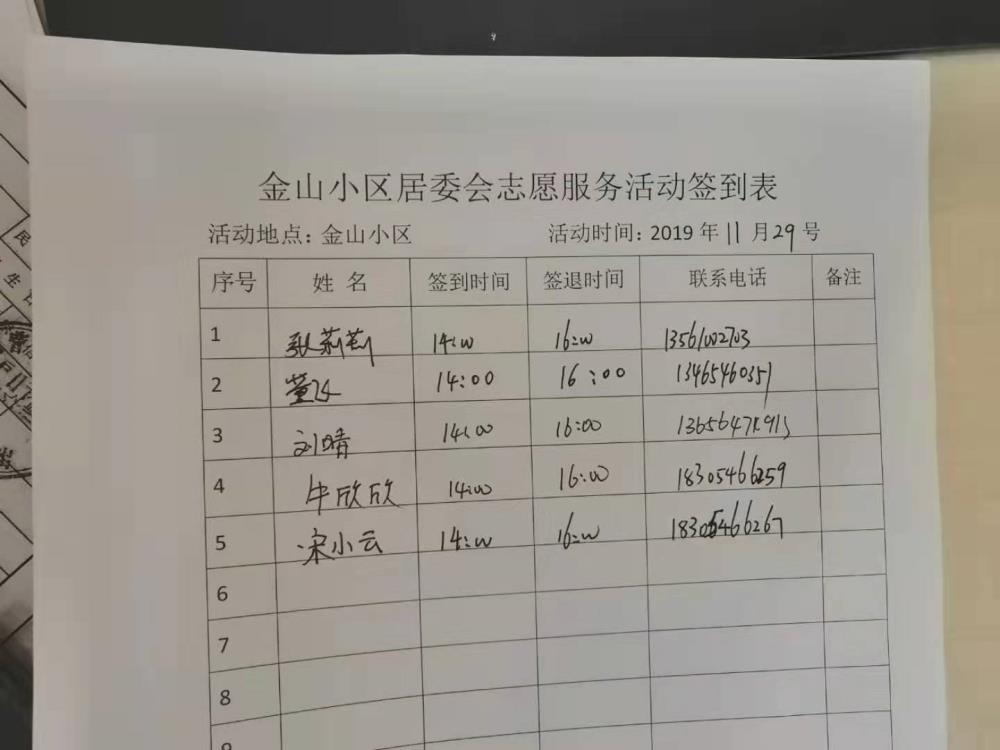 金山小区居委会志愿服务活动签到表
活动地点：金山小区 活动时间：2019 年 11 月 29 号
序号 姓 名 签到时间 签退时间 联系电话 备注
1 张莉莉 14:00 16:00 13561002703
2 董 14:00 16:00 13465460351
3 刘晴 14:00 16:00
4 牛欣欣 14:00 16:00 18305466259
5 宋小云 14:00 16:00 18305466267
6
7
8
9